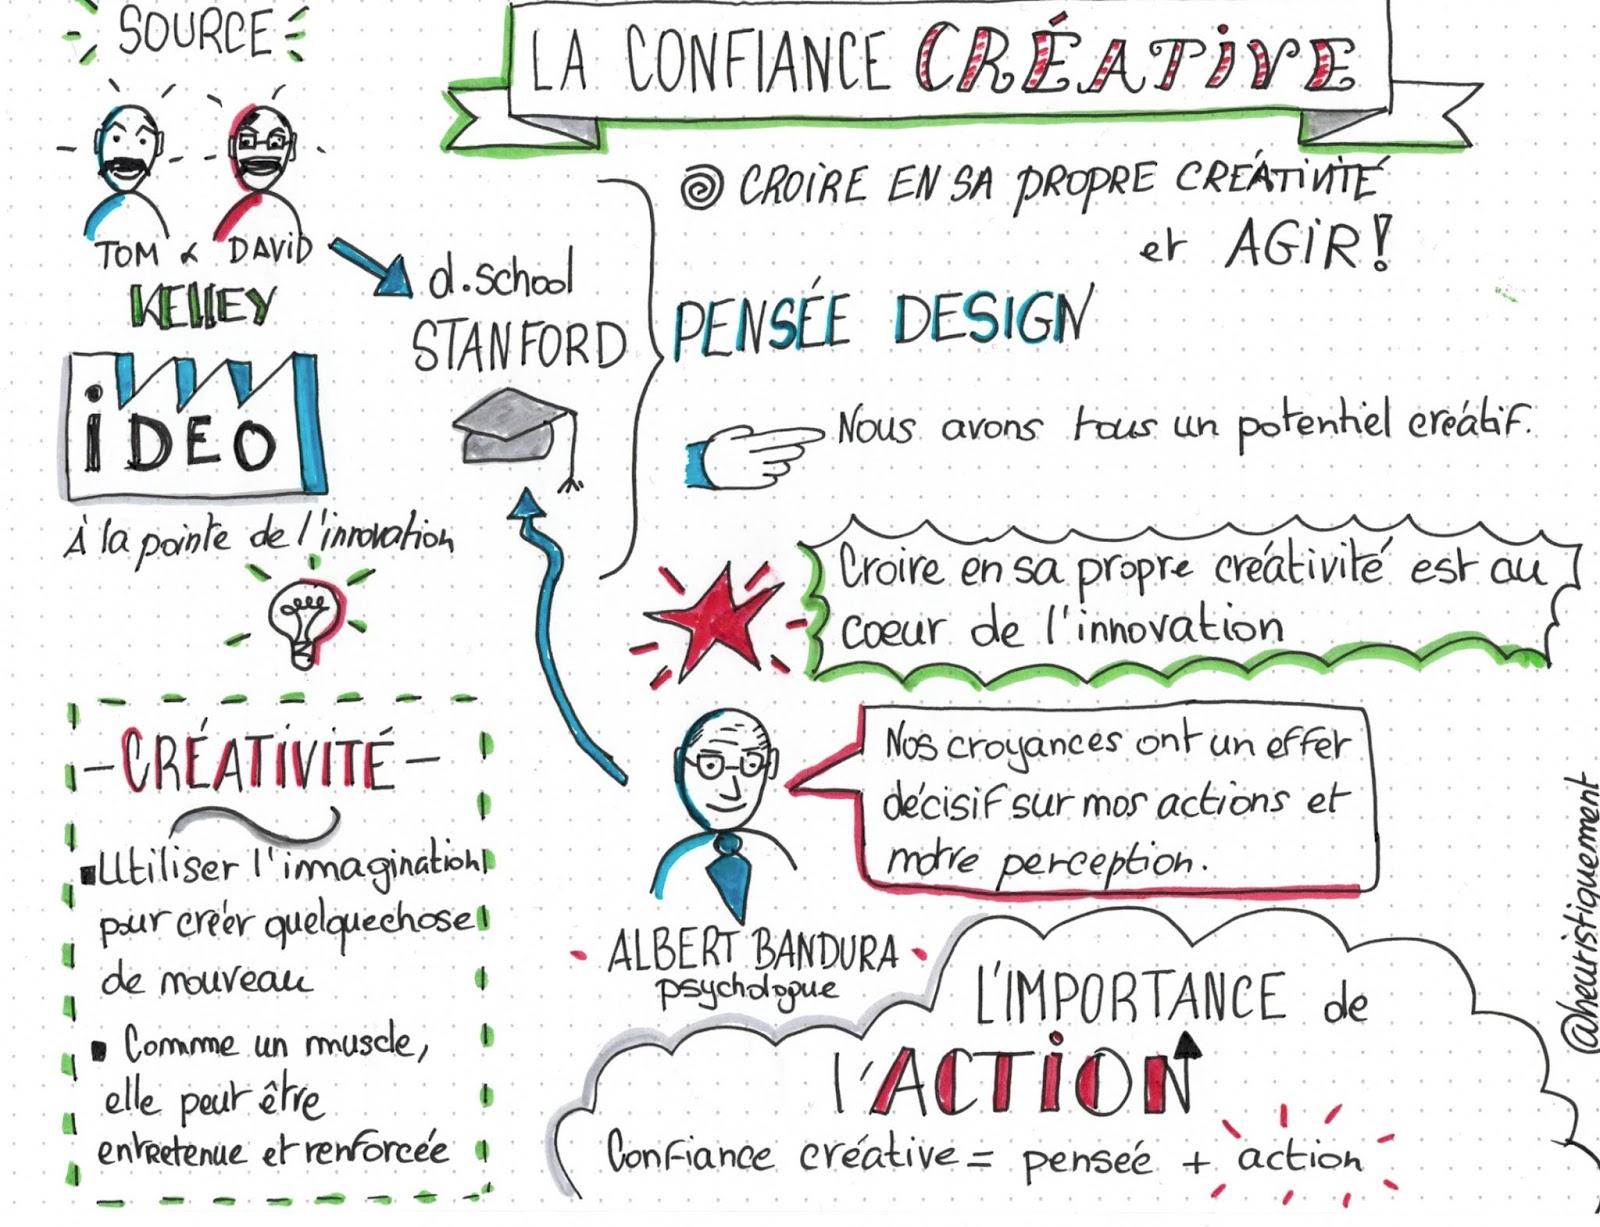 SOURCE
TOM & DAVID
KELLEY
d.school
STANFORD
iDEO
À la pointe de l'innovation
LA CONFIANCE CRÉATIVE
CROIRE EN SA PROPRE CRÉATIVITÉ
et AGIR!
PENSÉE DESIGN
Nous avons tous un potentiel créatif.
Croire en sa propre créativité est au
coeur de l'innovation
- CRÉATIVITÉ -
Utiliser l'immagination
pour créer quelquechose
de nouveau
Comme un muscle,
elle peut être
entretenue et renforcée
Nos croyances ont un effet
décisif sur nos actions et
notre perception.
ALBERT BANDURA
psychologue
L'IMPORTANCE de
l'ACTION
Confiance créative = pensée + action
@heuristiquement